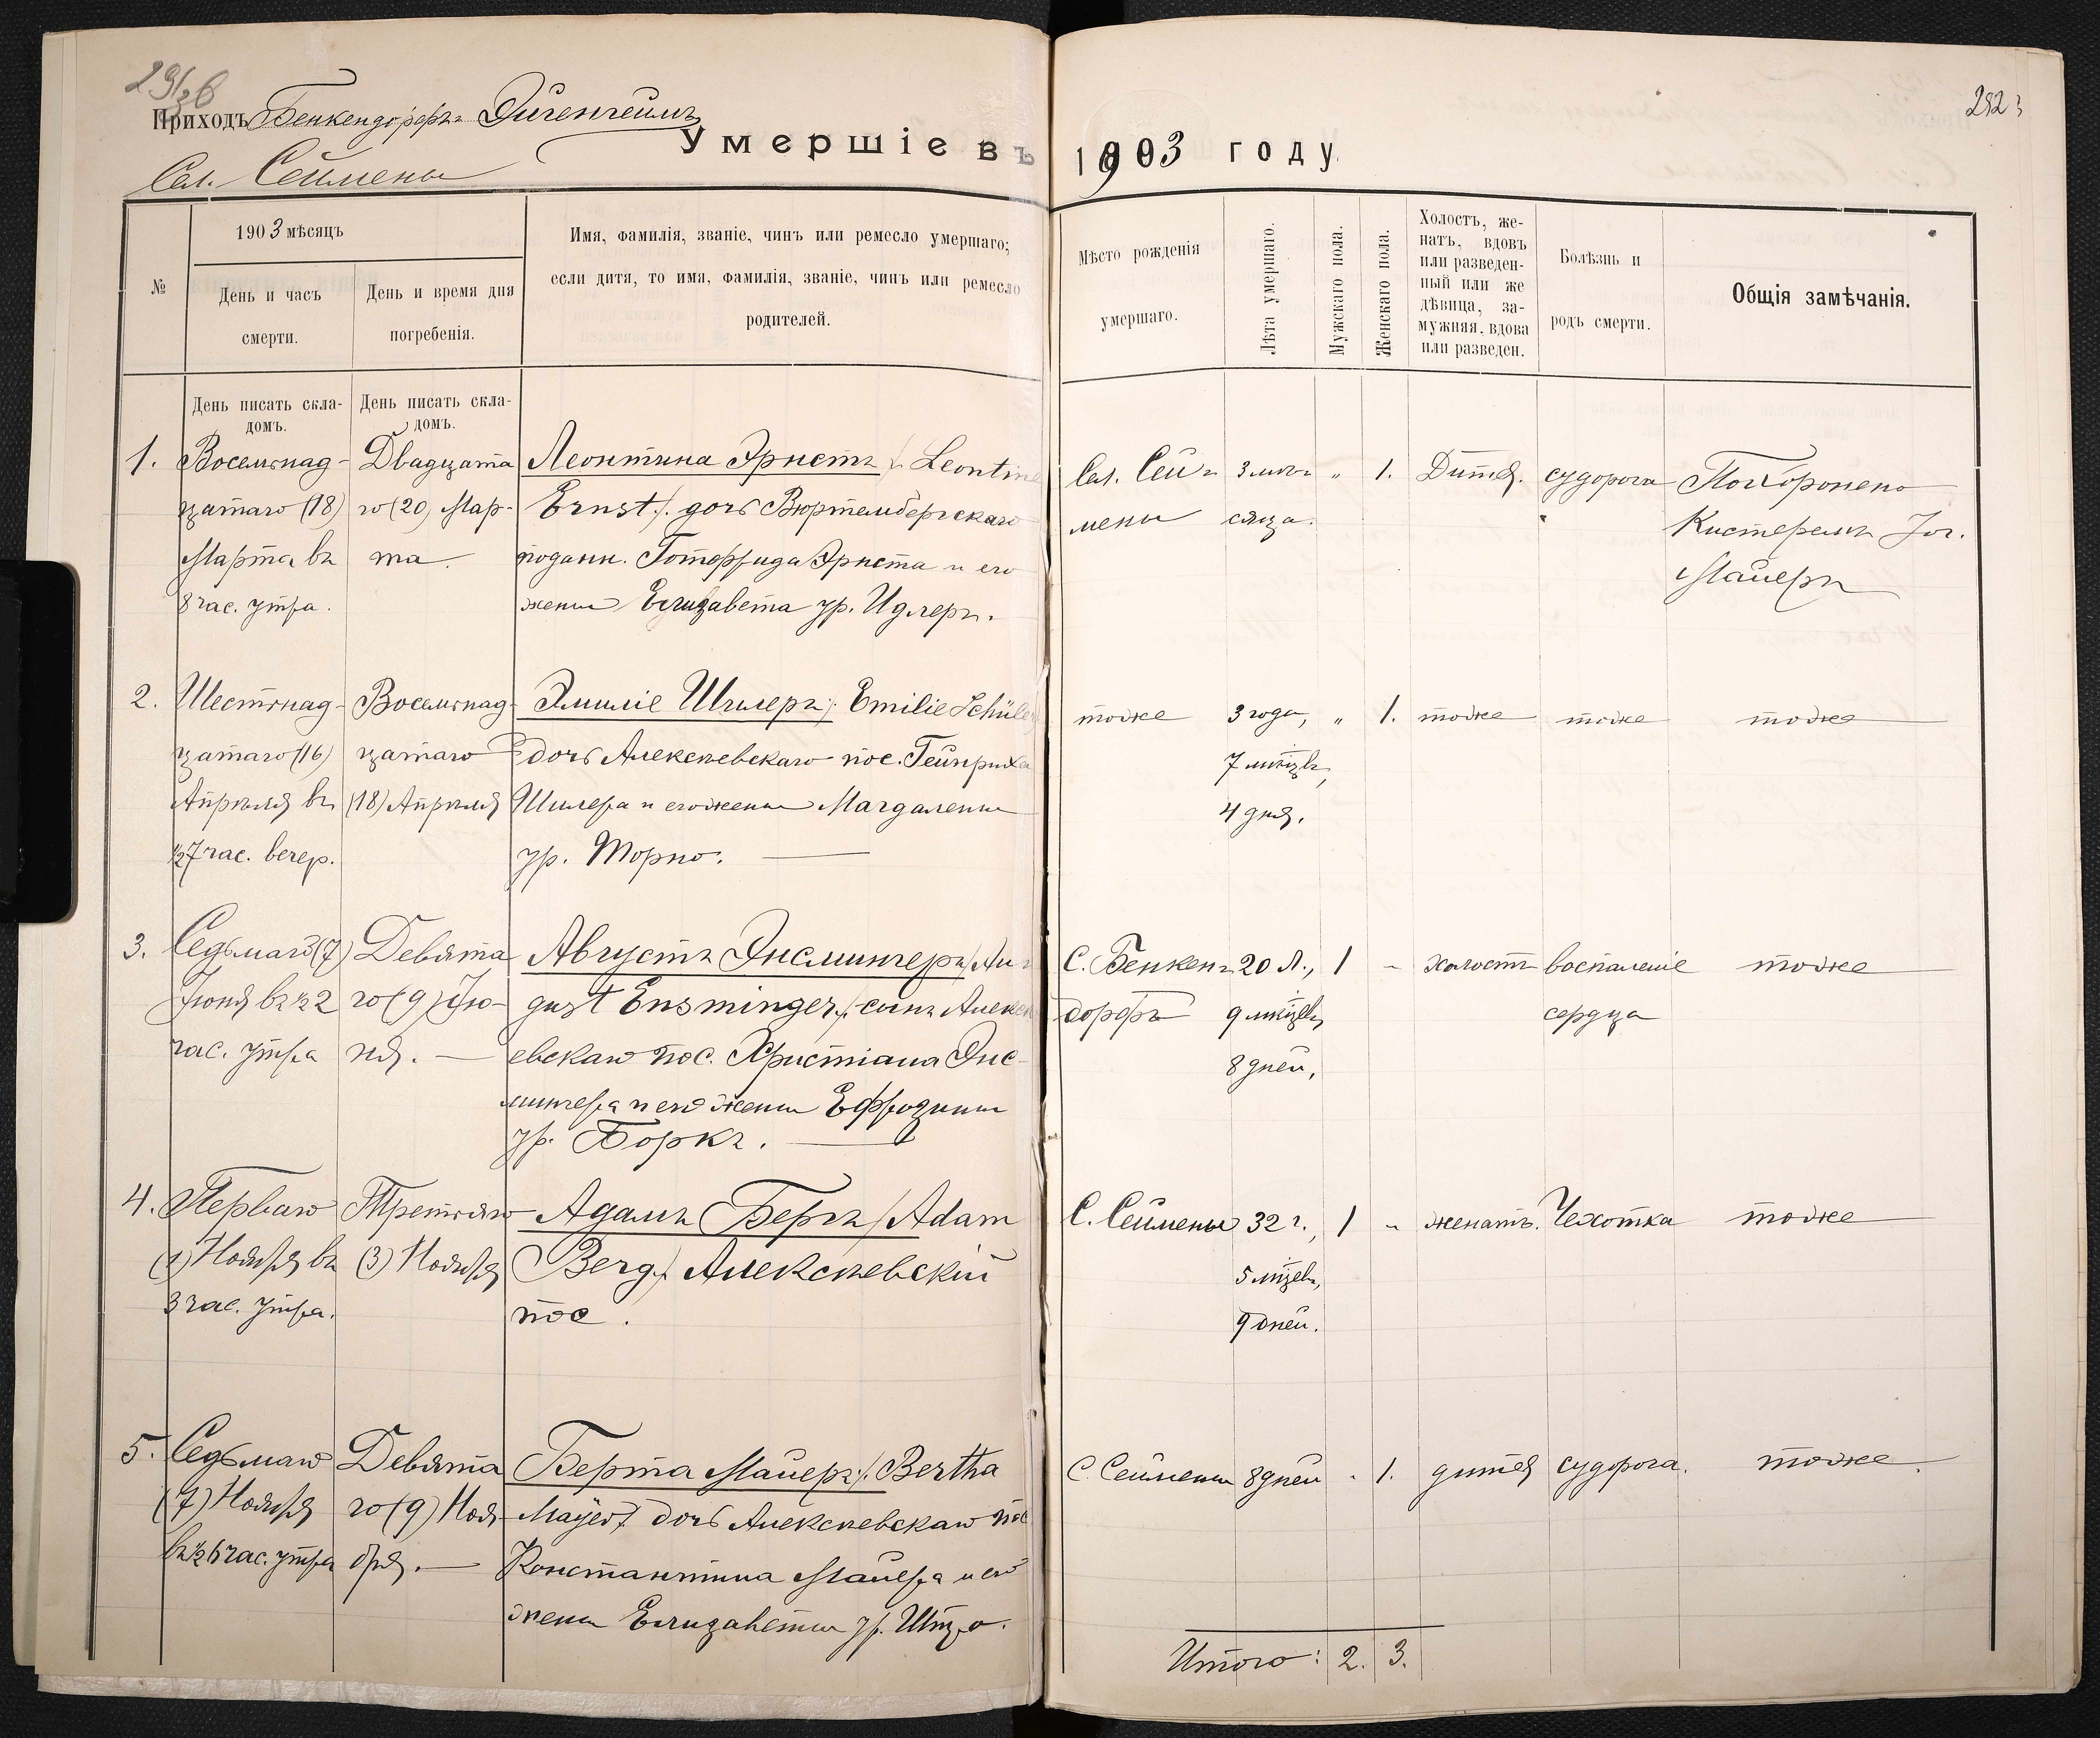 29
Приходъ Бенкендорфъ Эйгенгеймъ
Сел. Сеймены
Умершіе въ 1903 году.
282
№
1903 мѣсяцъ
День и часъ
смерти.
День и время дня
погребенія.
Имя, фамилія, званіе, чинъ или ремесло умершаго;
если дитя, то имя, фамилія, званіе, чинъ или ремесло
родителей.
Мѣсто рожденія
умершаго.
Лѣта умершаго.
Мужскаго пола.
Женскаго пола.
Холостъ, же-
натъ, вдовъ
или разведен-
ный или же
дѣвица, за-
мужняя, вдова
или разведен.
Болѣзнь и
родъ смерти.
Общія замѣчанія.
День писать скла-
домъ.
День писать скла-
домъ.
1.
Восемнад-
цатаго (18)
Марта въ
8 час. утра.
Двадцата
го (20) Мар-
та.
Леонтина Эрнстъ /: Leontine
Ernst /. дочь Вюртембергскаго
поданн. Готфрида Эрнста и его
жены Елизавета ур. Идлеръ.
Сел. Сей-
мены
3 мѣ-
сяца.
„
1.
Дитя.
судорога
Похоронено
Кистеремъ Іог.
Майеръ
2.
Шестнад-
цатаго (16)
Апрѣля въ
½7 час. вечер.
Восемнад-
цатаго
(18) Апрѣля
Эмиліе Шилеръ /: Emilie Schüler
дочь Алексѣевскаго пос. Гейнриха
Шилера и его жены Магдалены
ур. Торно.
тоже
3 года,
7 мѣцъ,
4 дня.
„
1.
тоже
тоже
тоже
3.
Седьмаго (7)
Іюня въ ½2
час. утра
Девята
го (9) Ію-
ня. —
Августъ Энсмингеръ /: Au-
gust Ensminger /: сынъ Алексѣ
евскаго пос. Христіана Энс-
мингера и его жены Ефрозины
ур. Боркъ.
С. Бенкен-
дорфъ
20 л.,
9 мѣцевъ,
8 дней,
1
„
холостъ
воспаленіе
сердца
тоже
4.
Перваго
(1) Ноября въ
3 час. утра.
Третьяго
(3) Ноября
Адамъ Бергъ /: Adam
Berg /. Алексѣевскій
пос.
С. Сеймены
32 г.,
5 мѣцевъ,
9 дней.
1
„
женатъ.
Чахотка
тоже
5.
Седьмаго
(7) Ноября
въ ½6 час. утра
Девята
го (9) Нояб-
ря. —
Берта Майеръ /: Bertha
Mayer / дочь Алексѣевскаго пос
Константина Майера и его
жены Елизаветы ур.
С. Сеймены
8 дней
„
1.
дитя
судорога.
тоже.
Итого: 2. 3.